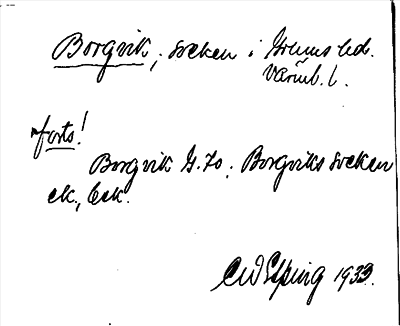 Borgvik, socken i Grums hd.
Värml. l.
forts!
Borgvik G. 70; Borgviks socken
ek, bck.
C W Elping 1933.